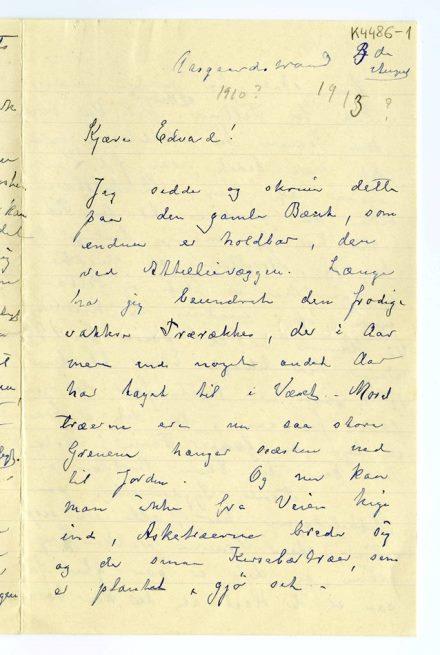 K4486-1
Aasgaardstrand 3 de
August
1910? 1913?
Kjære Edvard!
Jeg sidder og skriver dette
paa den gamle Bænk, som
endnu er holdbar, den
ved Attelievæggen. Længe
har jeg beundret den frodige
vakkre Trærække, der i Aar
mer end noget andet Aar
har taget til i Væxt. - Morel
træerne er nu saa store
Grenene hænger næsten ned
til Jorden. Og nu kan
man ikke fra Veien kige
ind, Asketræerne breder sig
og de smaa Kirsebærtræer, som
er plantet, gjør sit -